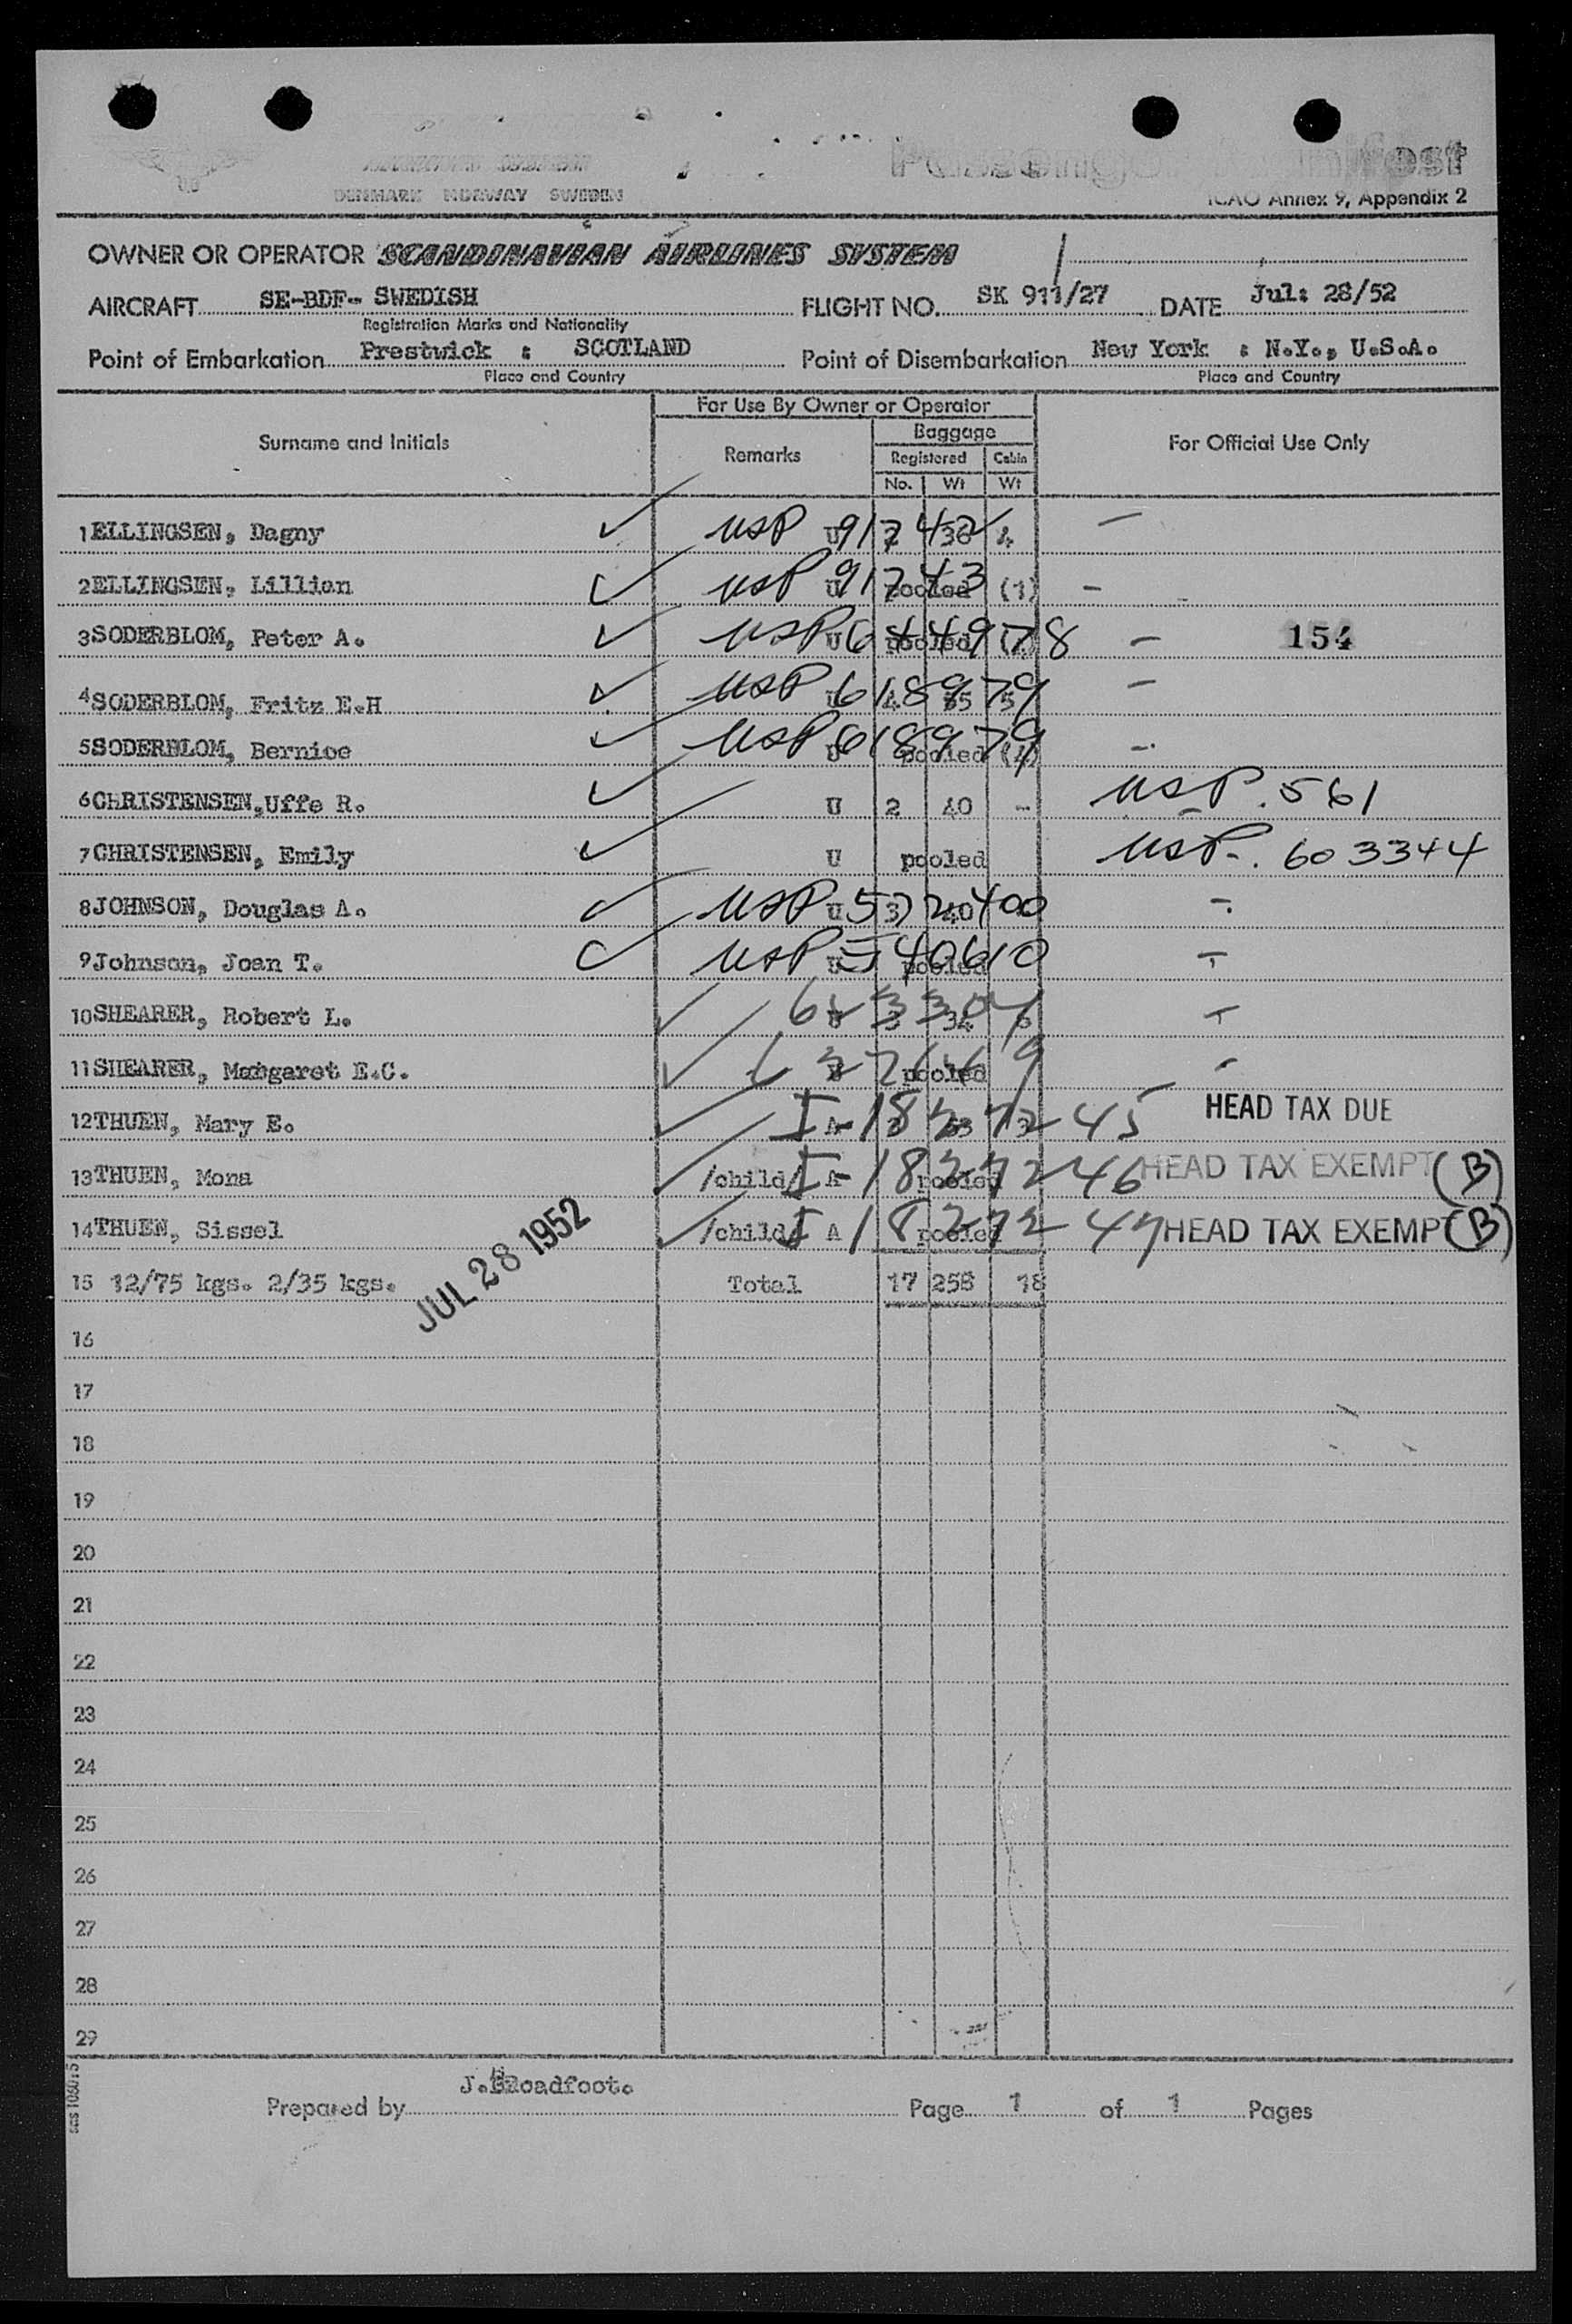 Passenger Manifest
DENMARK NORWAY SWEDEN
ICAO Annex 9, Appendix 2
OWNER OR OPERATOR SCANDINAVIAN AIRLINES SYSTEM
AIRCRAFT SE-BDF- SWEDISH FLIGHT NO. SK 911/27 DATE Jul: 28/52
Registration Marks and Nationality
Point of Embarkation Prestwick : SCOTLAND Point of Disembarkation New York : N.Y., U.S.A.
Place and Country Place and Country
For Use By Owner or Operator
Surname and Initials Remarks Baggage For Official Use Only
Registered Cabin
No. Wt Wt
1 ELLINGSEN, Dagny USP U 4
2 ELLINGSEN, Lillian USP U 91743 pooled (1) -
3 SODERBLOM, Peter A. USP U pooled - 154
4 SODERBLOM, Fritz E.H USP U 618979 -
5 SODERBLOM, Bernice USP U 618979 pooled -
6 CHRISTENSEN, Uffe R. U 2 40 - USP. 561
7 CHRISTENSEN, Emily U pooled USP. 603344
8 JOHNSON, Douglas A. USP U 3 40 -
9 Johnson, Joan T. USP U 540610 pooled -
10 SHEARER, Robert L. 3 34 6 -
11 SHEARER, Margaret E.C. pooled -
12 THUEN, Mary E. I-1827245 A HEAD TAX DUE
13 THUEN, Mona /child/ I-1827246 A pooled HEAD TAX EXEMPT (B)
14 THUEN, Sissel /child/ I 1827247 A pooled HEAD TAX EXEMPT (B)
15 12/75 kgs. 2/35 kgs. Total 17 258 18
JUL 28 1952
16
17
18
19
20
21
22
23
24
25
26
27
28
29
J. Broadfoot.
Prepared by Page 1 of 1 Pages